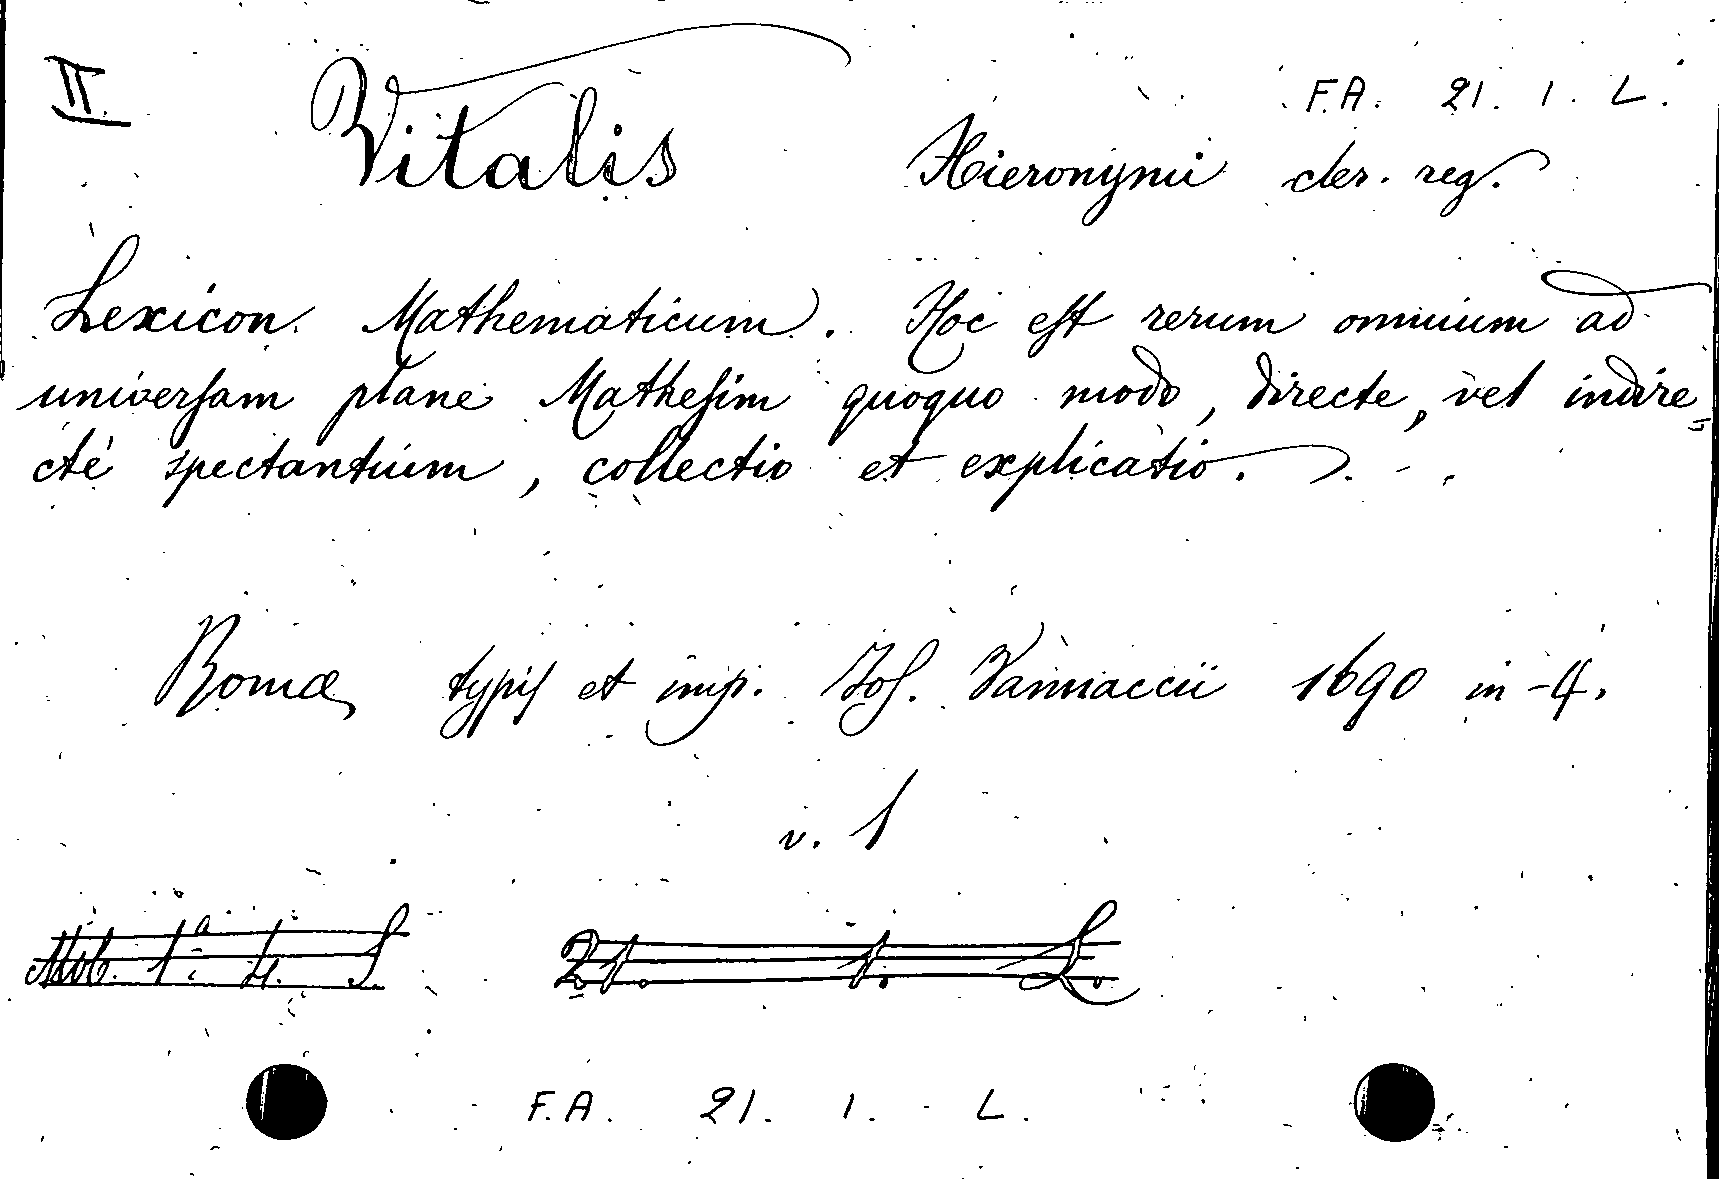 II. F.A. 21. 1. L.
Vitalis Hieronymi cler. reg.
Lexicon Mathematicum. Hoc est rerum omnium ad
universam plane Mathesim quoquo modo, directe, vel indire=
ctè spectantium, collectio et explicatio. . - .
Romæ typis et imp. Jos. Vannaccii 1690 in-4.
v. 1
Mob. 1ª. 4. S. 21. 1. L.
F.A. 21. 1. L.